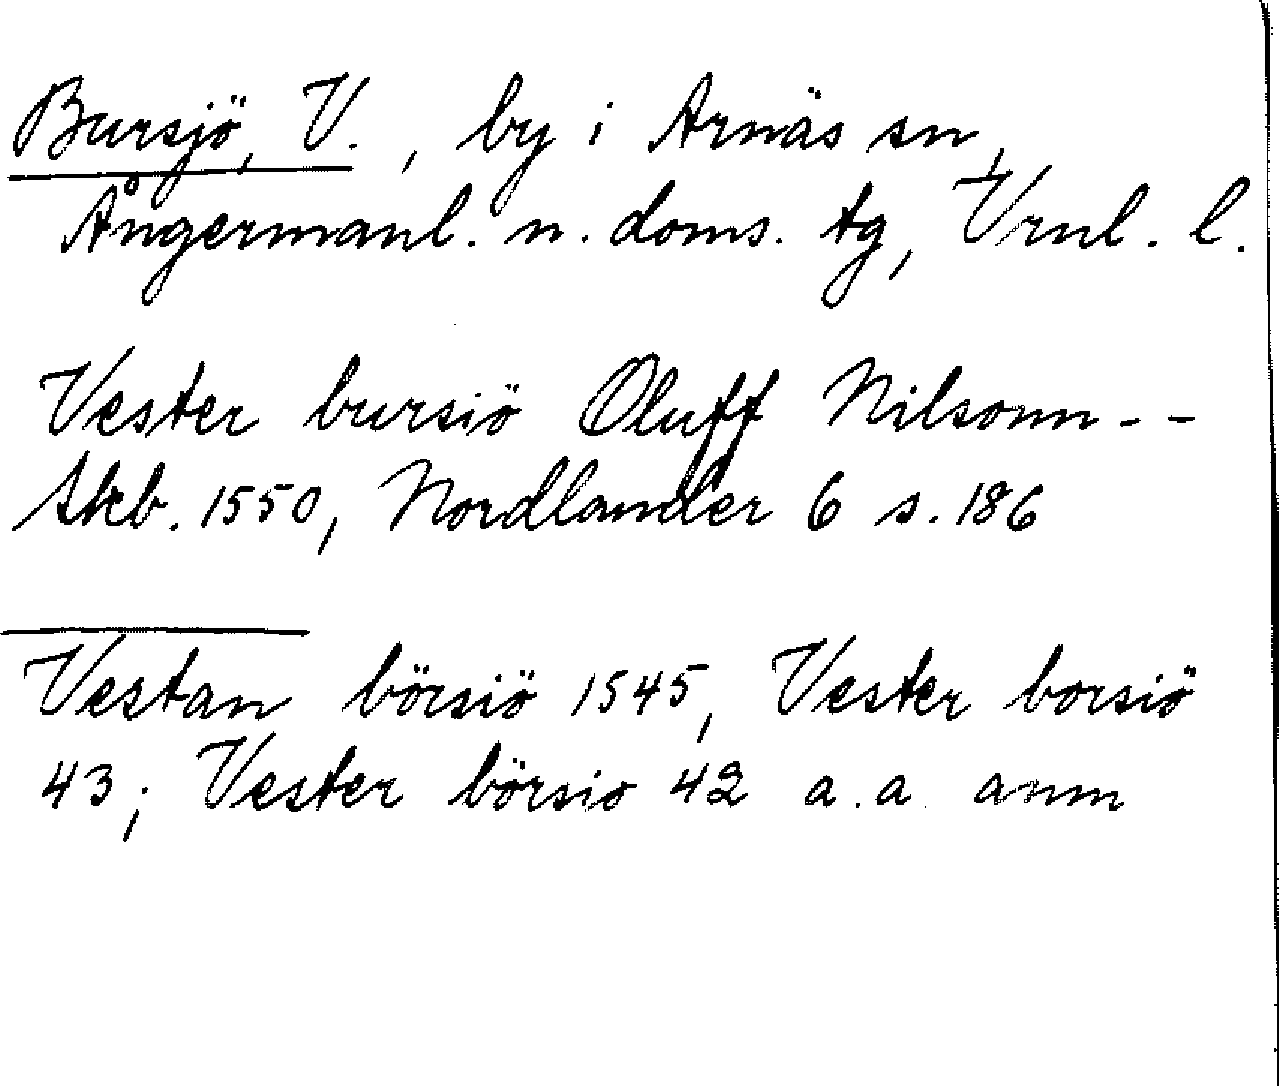 Bursjö, V., by i Arnäs sn,
Ångermanl. n. doms. tg, Vrnl. l.
Vester bursiö Oluff Nilsonn - -
Skb. 1550, Nordlander 6 s. 186
Vestan börsiö 1545, Vester borsiö
43; Vester börsio 42 a.a. anm